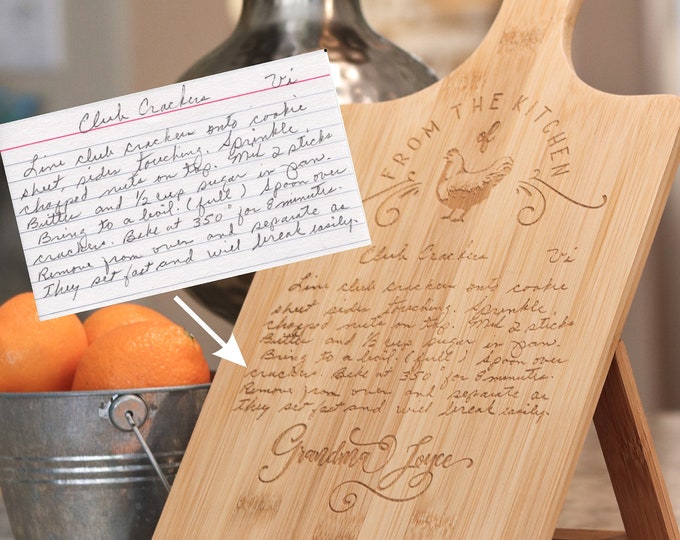 Club Crackers Vi
Line club crackers onto cookie
sheet, sides touching. Sprinkle
chopped nuts on top. Mel 2 sticks
Butter and 1/2 cup sugar in pan.
Bring to a boil. (full) Spoon over
crackers. Bake at 350° for 8 minutes.
Remove from oven and separate as
They set fast and will break easily.
FROM THE KITCHEN
of
Club Crackers Vi
Line club crackers onto cookie
sheet sides touching. Sprinkle
chopped nuts on top. Mel 2 sticks
Butter and 1/2 cup sugar in pan.
Bring to a boil. (full) Spoon over
crackers. Bake at 350° for 8 minutes.
Remove from oven and separate as
They set fast and will break easily.
Grandma Joyce